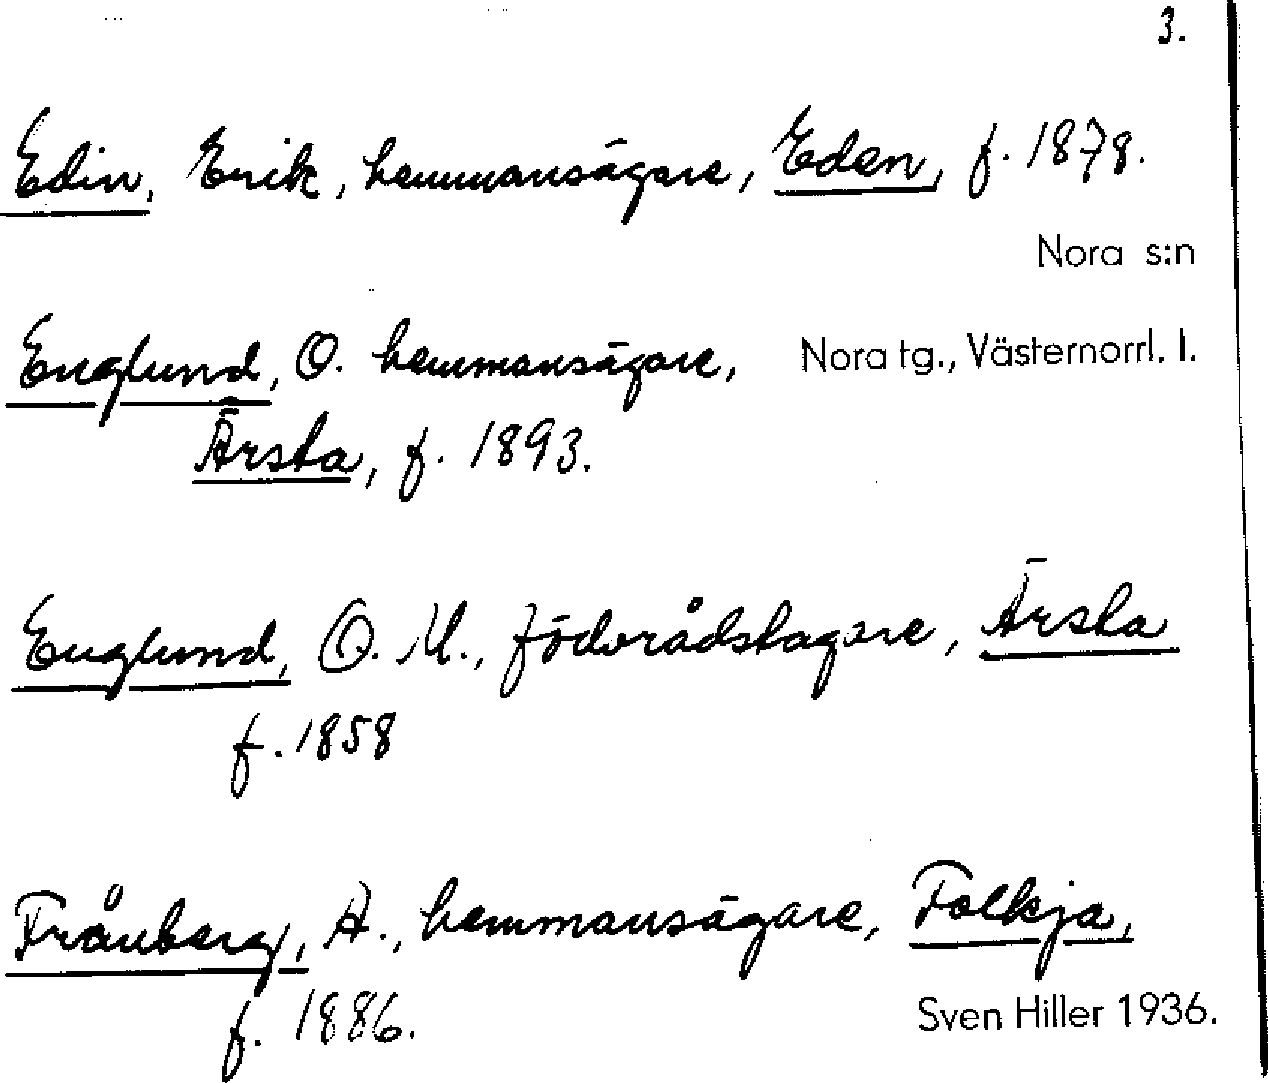 3.
Edin, Erik, hemmansägare, Eden, f. 1878.
Nora s:n
Englund, O. hemmansägare, Nora tg., Västernorrl. l.
Ärsta, f. 1893.
Englund, O. M., födorådstagare, Ärsta
f. 1858
Frånberg, A., hemmansägare, Folkja,
f. 1886.
Sven Hiller 1936.